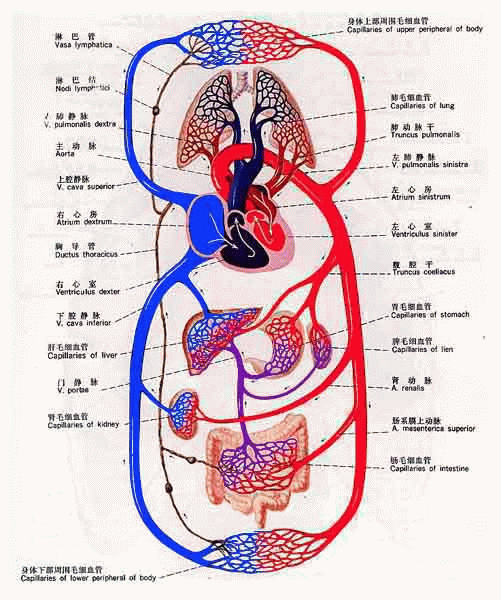 淋巴管
Vasa lymphatica
淋巴结
Nodi lymphatici
肺静脉
V. pulmonalis dextra
主动脉
Aorta
上腔静脉
V. cava superior
右心房
Atrium dextrum
胸导管
Ductus thoracicus
右心室
Ventriculus dexter
下腔静脉
V. cava inferior
肝毛细血管
Capillaries of liver
门静脉
V. portae
肾毛细血管
Capillaries of kidney
身体下部周围毛细血管
Capillaries of lower peripheral of body
身体上部周围毛细血管
Capillaries of upper peripheral of body
肺毛细血管
Capillaries of lung
肺动脉干
Truncus pulmonalis
左肺静脉
V. pulmonalis sinistra
左心房
Atrium sinistrum
左心室
Ventriculus sinister
腹腔干
Truncus coeliacus
胃毛细血管
Capillaries of stomach
脾毛细血管
Capillaries of lien
肾动脉
A. renalis
肠系膜上动脉
A. mesenterica superior
肠毛细血管
Capillaries of intestine